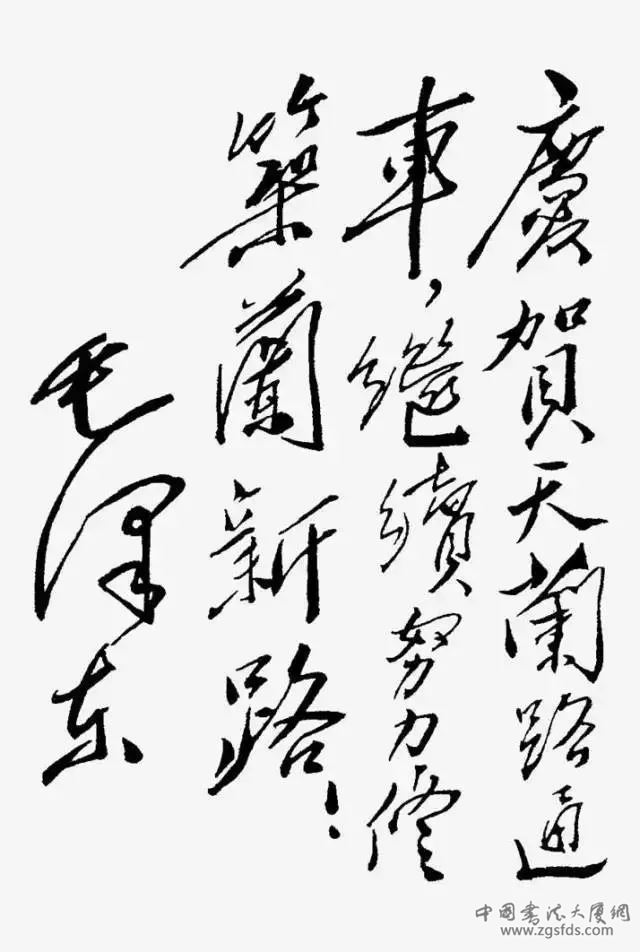 慶賀天蘭路通
車，繼續努力修
築蘭新路！
毛澤东
中国书法大厦網
www.zgsfds.com